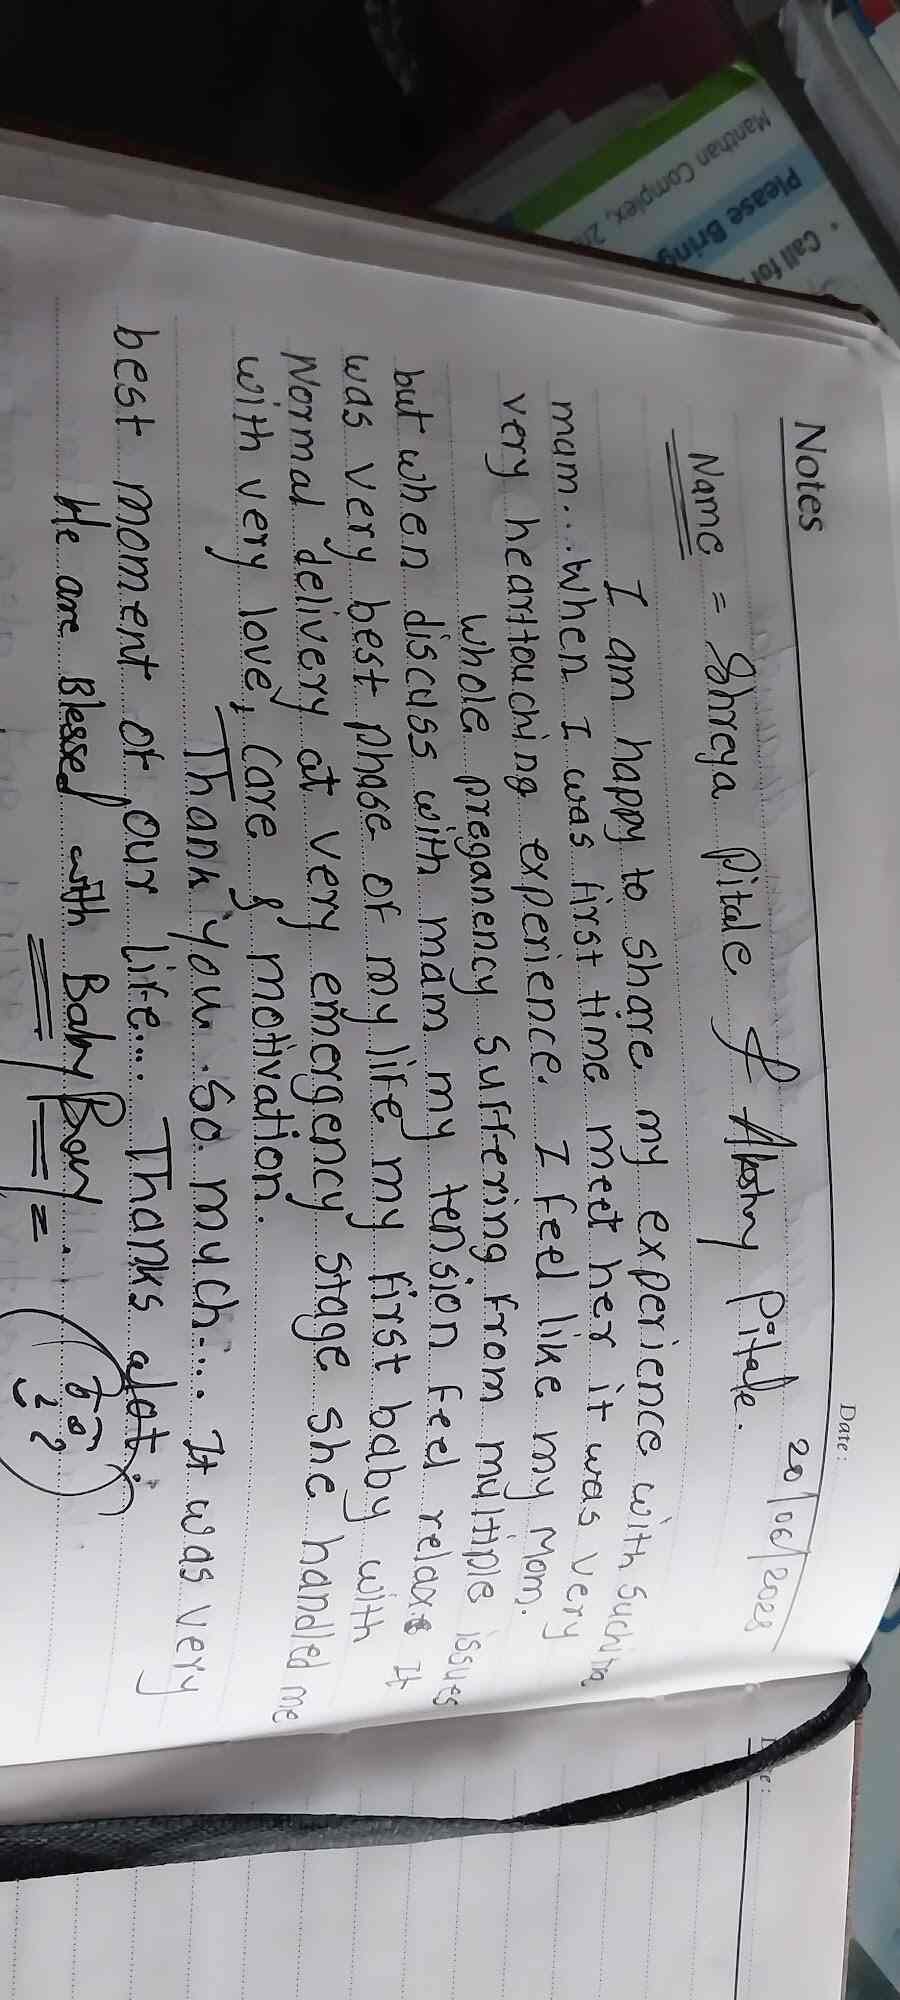 Manthan Complex, 2n
Please Bring
• Call for
Notes
Date:
20/06/2023
Name = Shreya Pitale & Akshay Pitale.
I am happy to share my experience with suchita
mam... When I was first time meet her it was very
very hearttouching experience. I feel like my Mom.
whole preganency suffering from multiple issues
but when discuss with mam my tension feel relax It
was very best phase of my life my first baby with
Normal delivery at very emergency stage she handled me
with very love, care & motivation.
Thank you so much.... It was very
best moment of our life... Thanks alot.
We are Blessed with Baby Boy..